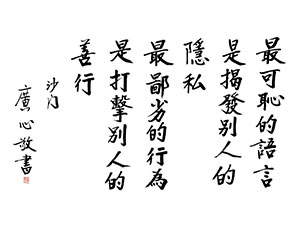 最可恥的語言
是揭發別人的
隱私
最鄙劣的行為
是打擊別人的
善行
沙門
廣心敬書